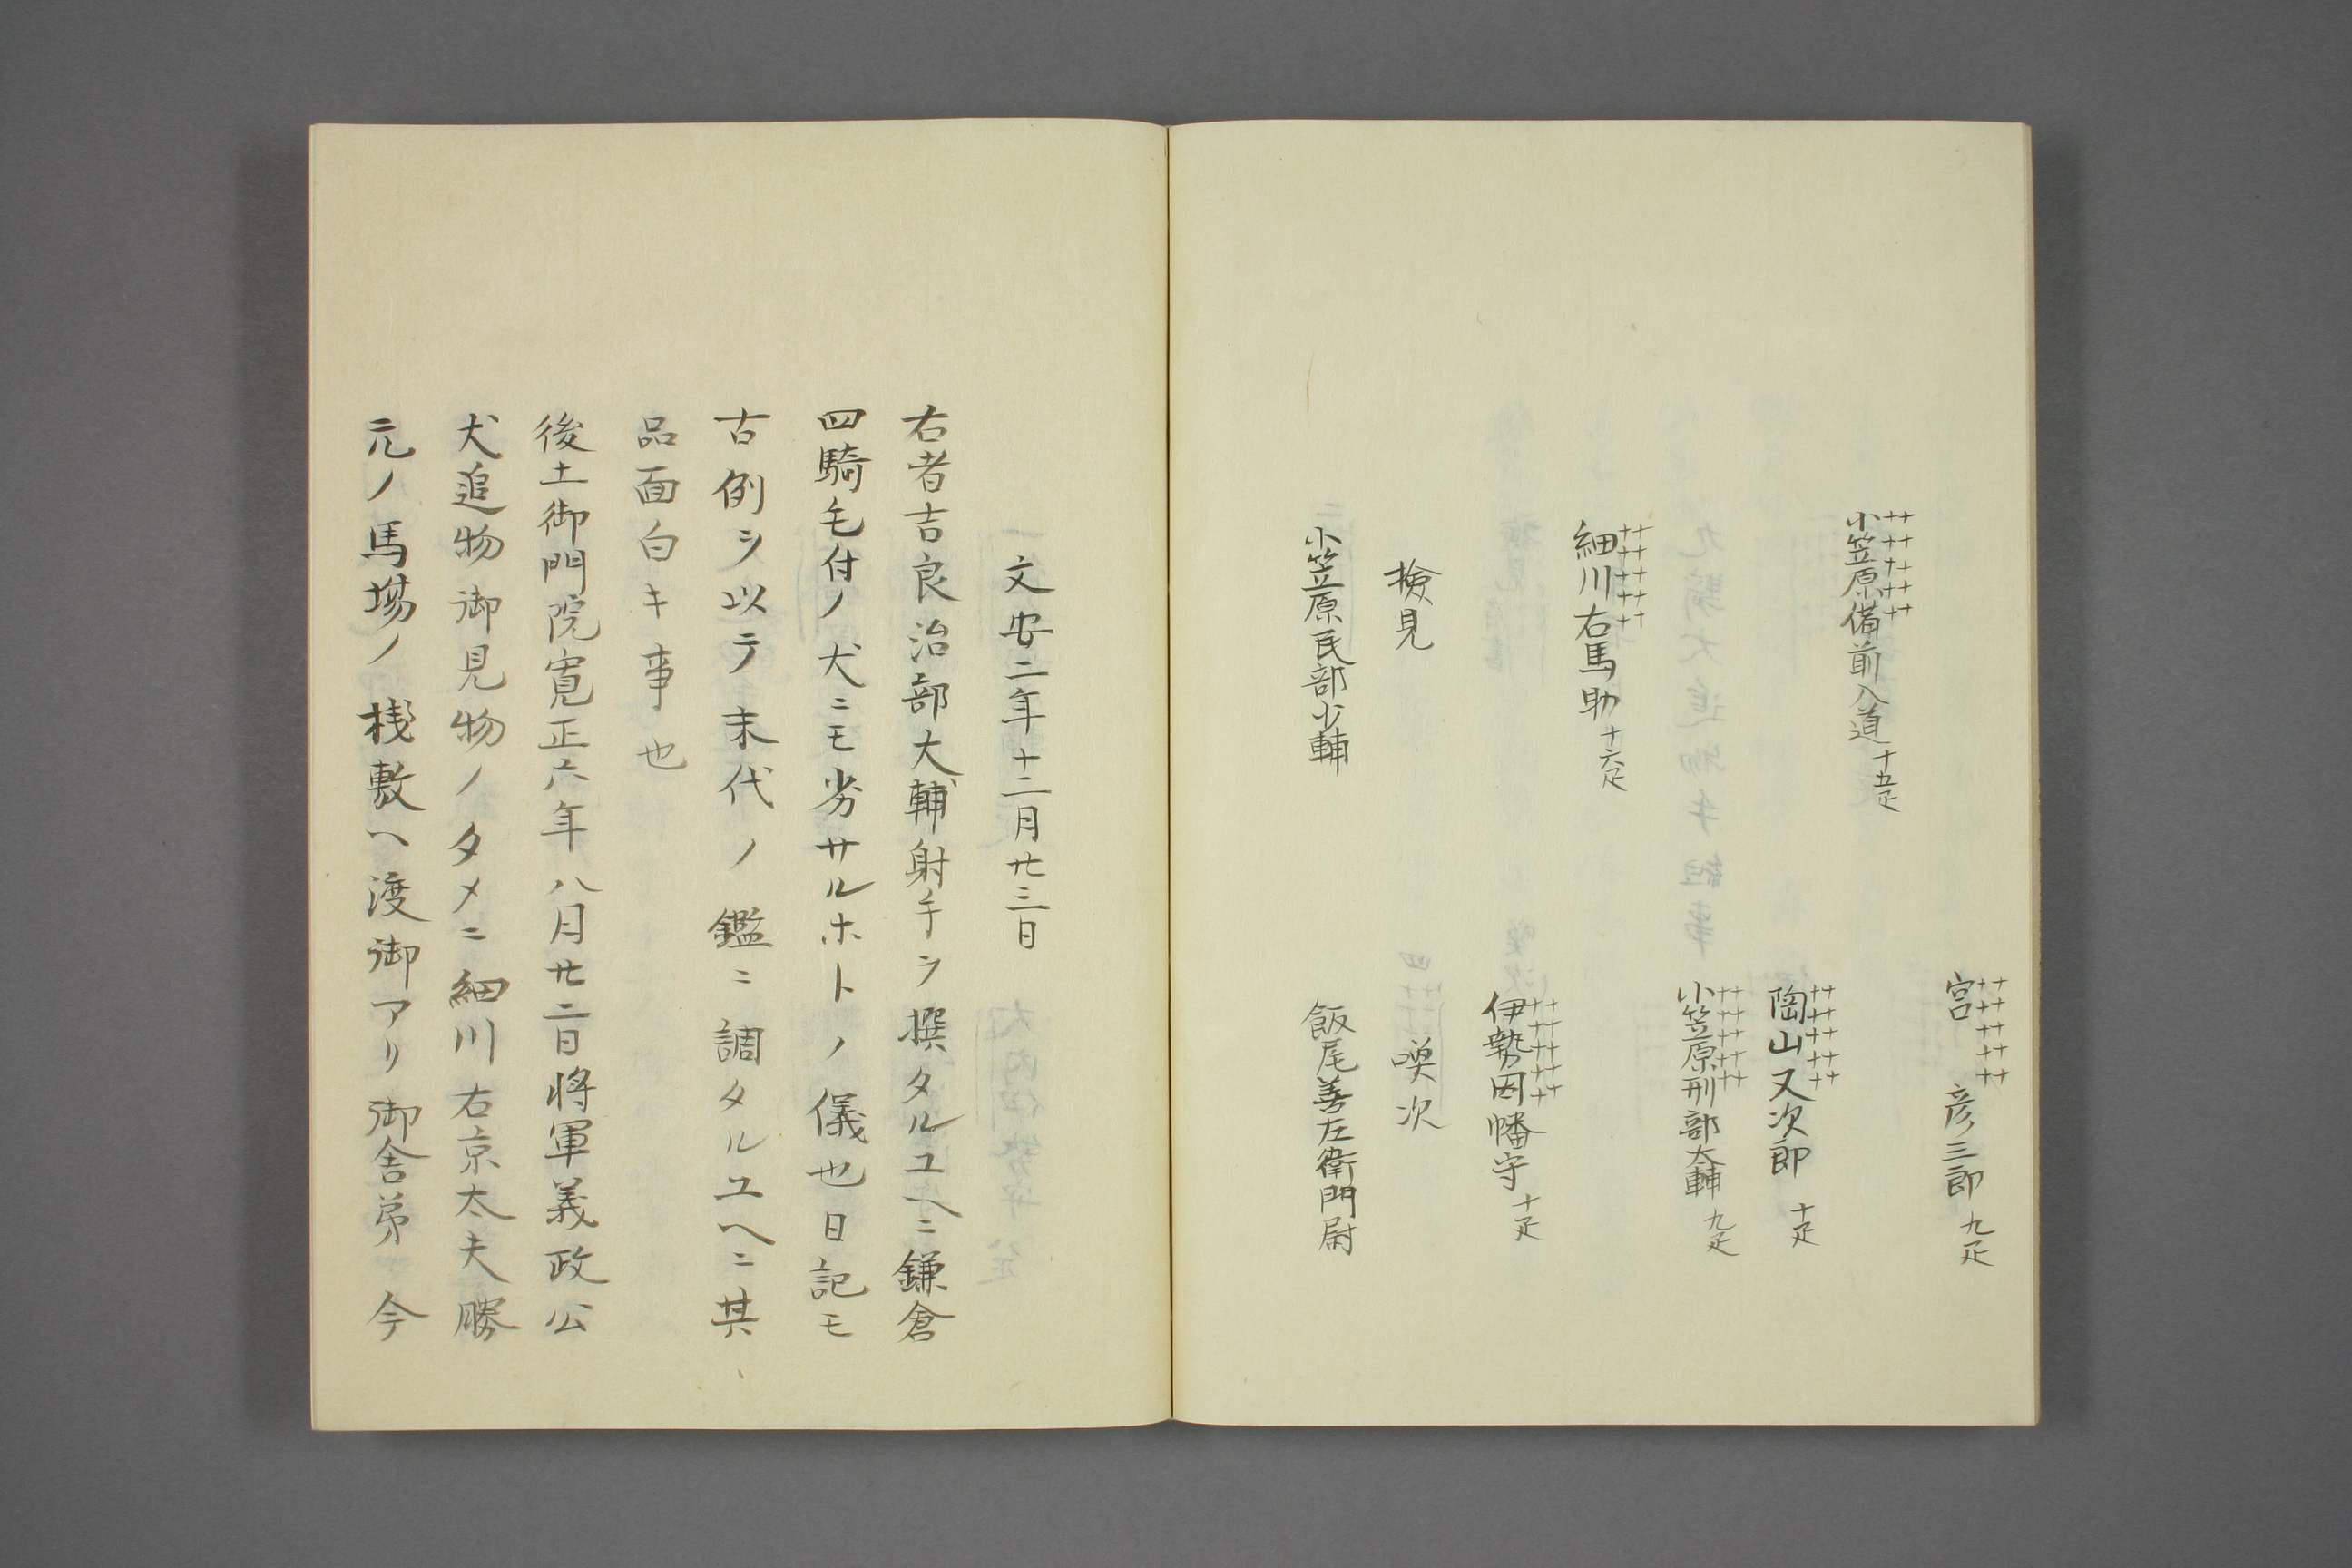 宮彦三郎 九疋
小笠原備前入道 十五疋
陶山又次郎 十疋
小笠原刑部大輔 九疋
細川右馬助 十六疋
伊勢因幡守 十疋
検見 喚次
小笠原民部少輔 飯尾善左衛門尉
文安二年十二月廿三日
右者吉良治部大輔射手ヲ撰タルユヘニ鎌倉
四騎毛付ノ犬ニモ劣サルホトノ儀也日記モ
古例ヲ以テ末代ノ鑑ニ調タルユヘニ其
品面白キ事也
後土御門院寛正六年八月廿二日将軍義政公
犬追物御見物ノタメニ細川右京太夫勝
元ノ馬場ノ桟敷ヘ渡御アリ御舎弟今